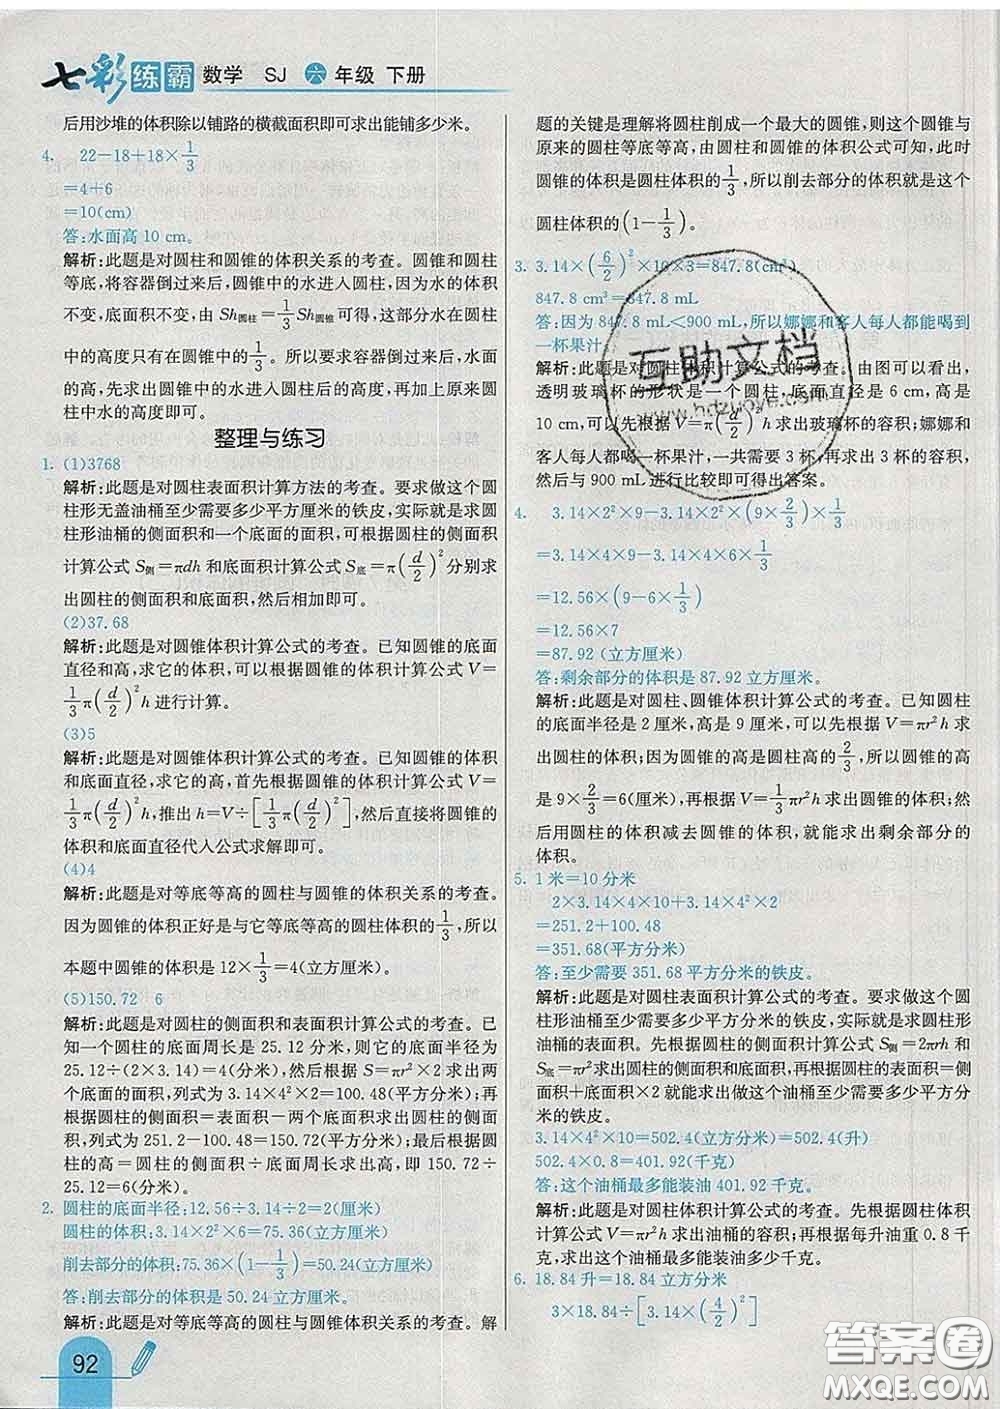 七彩练霸 数学 SJ 六年级 下册
后用沙堆的体积除以铺路的横截面积即可求出能铺多少米。
4. 22－18＋18×1/3
＝4＋6
＝10(cm)
答:水面高 10 cm。
解析:此题是对圆柱和圆锥的体积关系的考查。圆锥和圆柱
等底,将容器倒过来后,圆锥中的水进入圆柱,因为水的体积
不变,底面积不变,由 Sh圆柱＝1/3Sh圆锥可得,这部分水在圆柱
中的高度只有在圆锥中的高度的1/3。所以要求容器倒过来后,水面
的高,先求出圆锥中的水进入圆柱后的高度,再加上原来圆
柱中水的高度即可。
整理与练习
1. (1)3768
解析:此题是对圆柱表面积计算方法的考查。要求做这个圆
柱形无盖油桶至少需要多少平方厘米的铁皮,实际就是求圆
柱形油桶的侧面积和一个底面的面积,可根据圆柱的侧面积
计算公式 S侧＝πdh 和底面积计算公式 S底＝π(d/2)²分别求
出圆柱的侧面积和底面积,然后相加即可。
(2)37.68
解析:此题是对圆锥体积计算公式的考查。已知圆锥的底面
直径和高,求它的体积,可以根据圆锥的体积计算公式 V＝
1/3π(d/2)²h 进行计算。
(3)5
解析:此题是对圆锥体积计算公式的考查。已知圆锥的体积
和底面直径,求它的高,首先根据圆锥的体积计算公式 V＝
1/3π(d/2)²h,推出 h＝V÷[1/3π(d/2)²],然后直接将圆锥
的体积和底面直径代入公式求解即可。
(4)4
解析:此题是对等底等高的圆柱与圆锥的体积关系的考查。
因为圆锥的体积正好是与它等底等高的圆柱体积的1/3,所以
本题中圆锥的体积是 12×1/3＝4(立方厘米)。
(5)150.72 6
解析:此题是对圆柱的侧面积和表面积计算公式的考查。已
知一个圆柱的底面周长是 25.12 分米,则它的底面半径为
25.12÷(2×3.14)＝4(分米),然后根据 S＝πr²×2 求出两
个底面的面积,列式为 3.14×4²×2＝100.48(平方分米);再
根据圆柱的侧面积＝表面积－两个底面积求出圆柱的侧面
积,列式为 251.2－100.48＝150.72(平方分米);最后根据圆柱
的高＝圆柱的侧面积÷底面周长求出高,即 150.72÷
25.12＝6(分米)。
2. 圆柱的底面半径:12.56÷3.14÷2＝2(厘米)
圆柱的体积:3.14×2²×6＝75.36(立方厘米)
削去部分的体积:75.36×(1－1/3)＝50.24(立方厘米)
答:削去部分的体积是 50.24 立方厘米。
解析:此题是对等底等高的圆柱与圆锥体积关系的考查。解
92
题的关键是理解将圆柱削成一个最大的圆锥,则这个圆锥与
原来的圆柱等底等高,由圆柱和圆锥的体积公式可知,此时
圆锥的体积是圆柱体积的1/3,所以削去部分的体积就是这个
圆柱体积的(1－1/3)。
3. 3.14×(6/2)²×10×3＝847.8(cm³)
847.8 cm³＝847.8 mL
答:因为 847.8 mL＜900 mL,所以娜娜和客人每人都能喝到
一杯果汁。
解析:此题是对圆柱体积计算公式的考查。由图可以看出,
透明玻璃杯的形状是一个圆柱,底面直径是 6 cm,高是
10 cm,可以先根据 V＝π(d/2)²h 求出玻璃杯的容积;娜娜和
客人每人都喝一杯果汁,一共需要 3 杯,再求出 3 杯的容积,
然后与 900 mL 进行比较即可得出答案。
4. 3.14×2²×9－3.14×2²×(9×2/3)×1/3
＝3.14×4×9－3.14×4×6×1/3
＝12.56×(9－6×1/3)
＝12.56×7
＝87.92 (立方厘米)
答:剩余部分的体积是 87.92 立方厘米。
解析:此题是对圆柱、圆锥体积计算公式的考查。已知圆柱
的底面半径是 2 厘米,高是 9 厘米,可以先根据 V＝πr²h 求
出圆柱的体积;因为圆锥的高是圆柱高的2/3,所以圆锥的高
是 9×2/3＝6(厘米),再根据 V＝1/3πr²h 求出圆锥的体积;然
后用圆柱的体积减去圆锥的体积,就能求出剩余部分的
体积。
5. 1 米＝10 分米
2×3.14×4×10＋3.14×4²×2
＝251.2＋100.48
＝351.68(平方分米)
答:至少需要 351.68 平方分米的铁皮。
解析:此题是对圆柱表面积计算公式的考查。要求做这个圆
柱形油桶至少需要多少平方分米的铁皮,实际就是求圆柱形
油桶的表面积。先根据圆柱的侧面积计算公式 S侧＝2πrh 和
S底＝πr²求出圆柱的侧面积和底面积,再根据圆柱的表面积＝侧
面积＋底面积×2 就能求出做这个油桶至少需要多少平方分
米的铁皮。
3.14×4²×10＝502.4(立方分米)＝502.4(升)
502.4×0.8＝401.92(千克)
答:这个油桶最多能装油 401.92 千克。
解析:此题是对圆柱体积计算公式的考查。先根据圆柱体积
计算公式 V＝πr²h 求出油桶的容积;再根据每升油重 0.8 千
克,求出这个油桶最多能装油多少千克。
6. 18.84 升＝18.84 立方分米
3×18.84÷[3.14×(4/2)²]
互助文档
www.hdzuoye.com
答案圈
MXQE.COM